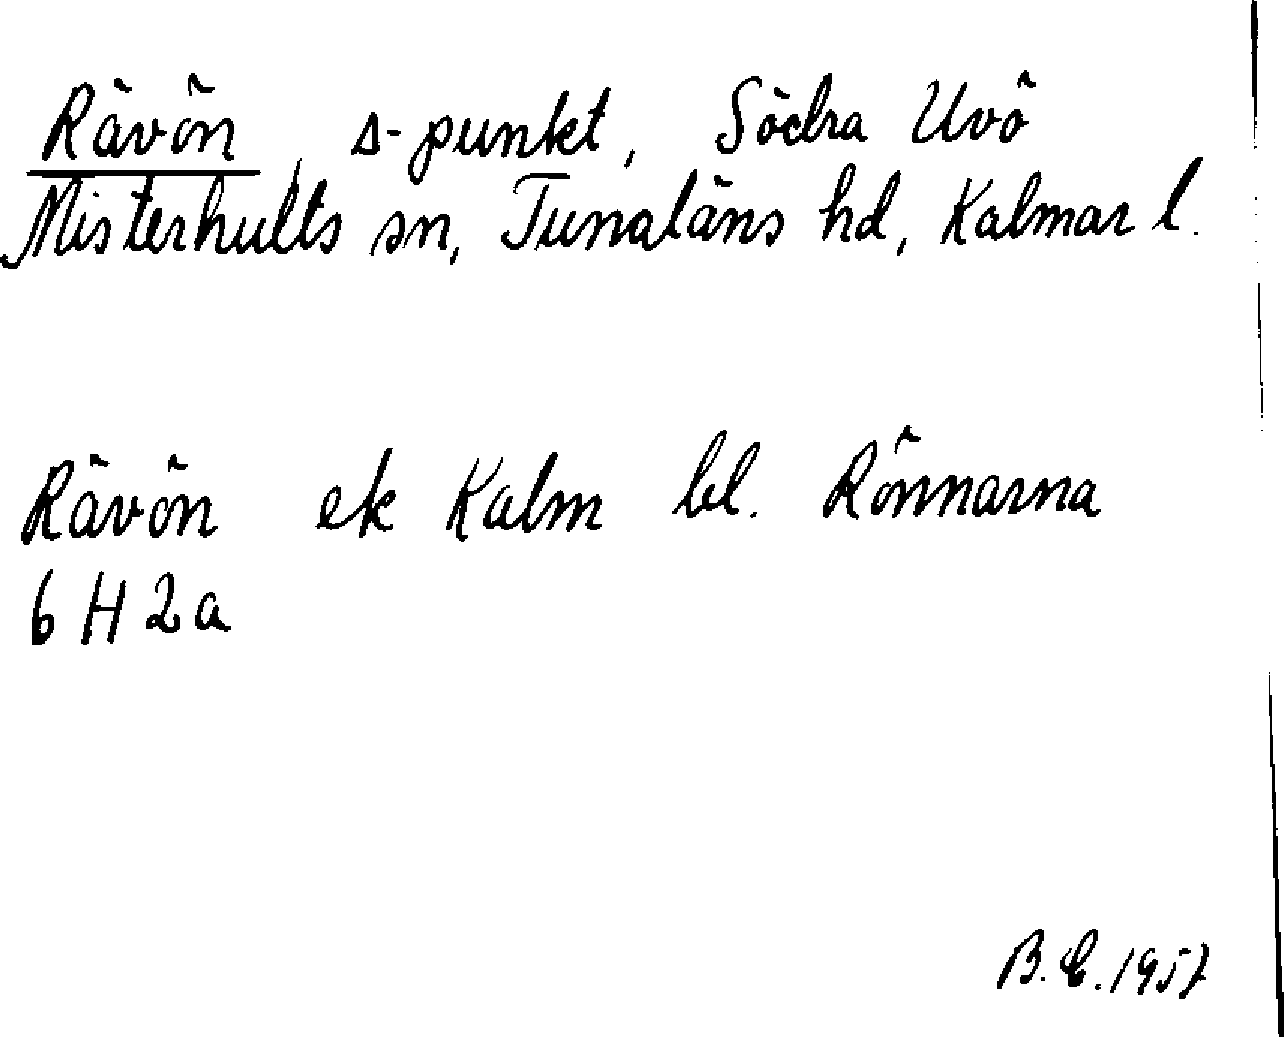 Rävön, s-punkt, Södra Uvö
Misterhults sn, Tunaläns hd, Kalmar l.
Rävön ek Kalm bl. Rönnarna
6 H 2a
B.E. 1957